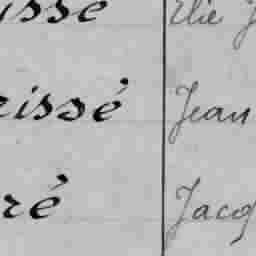 issé Elie J
rissé Jean
ré Jacq